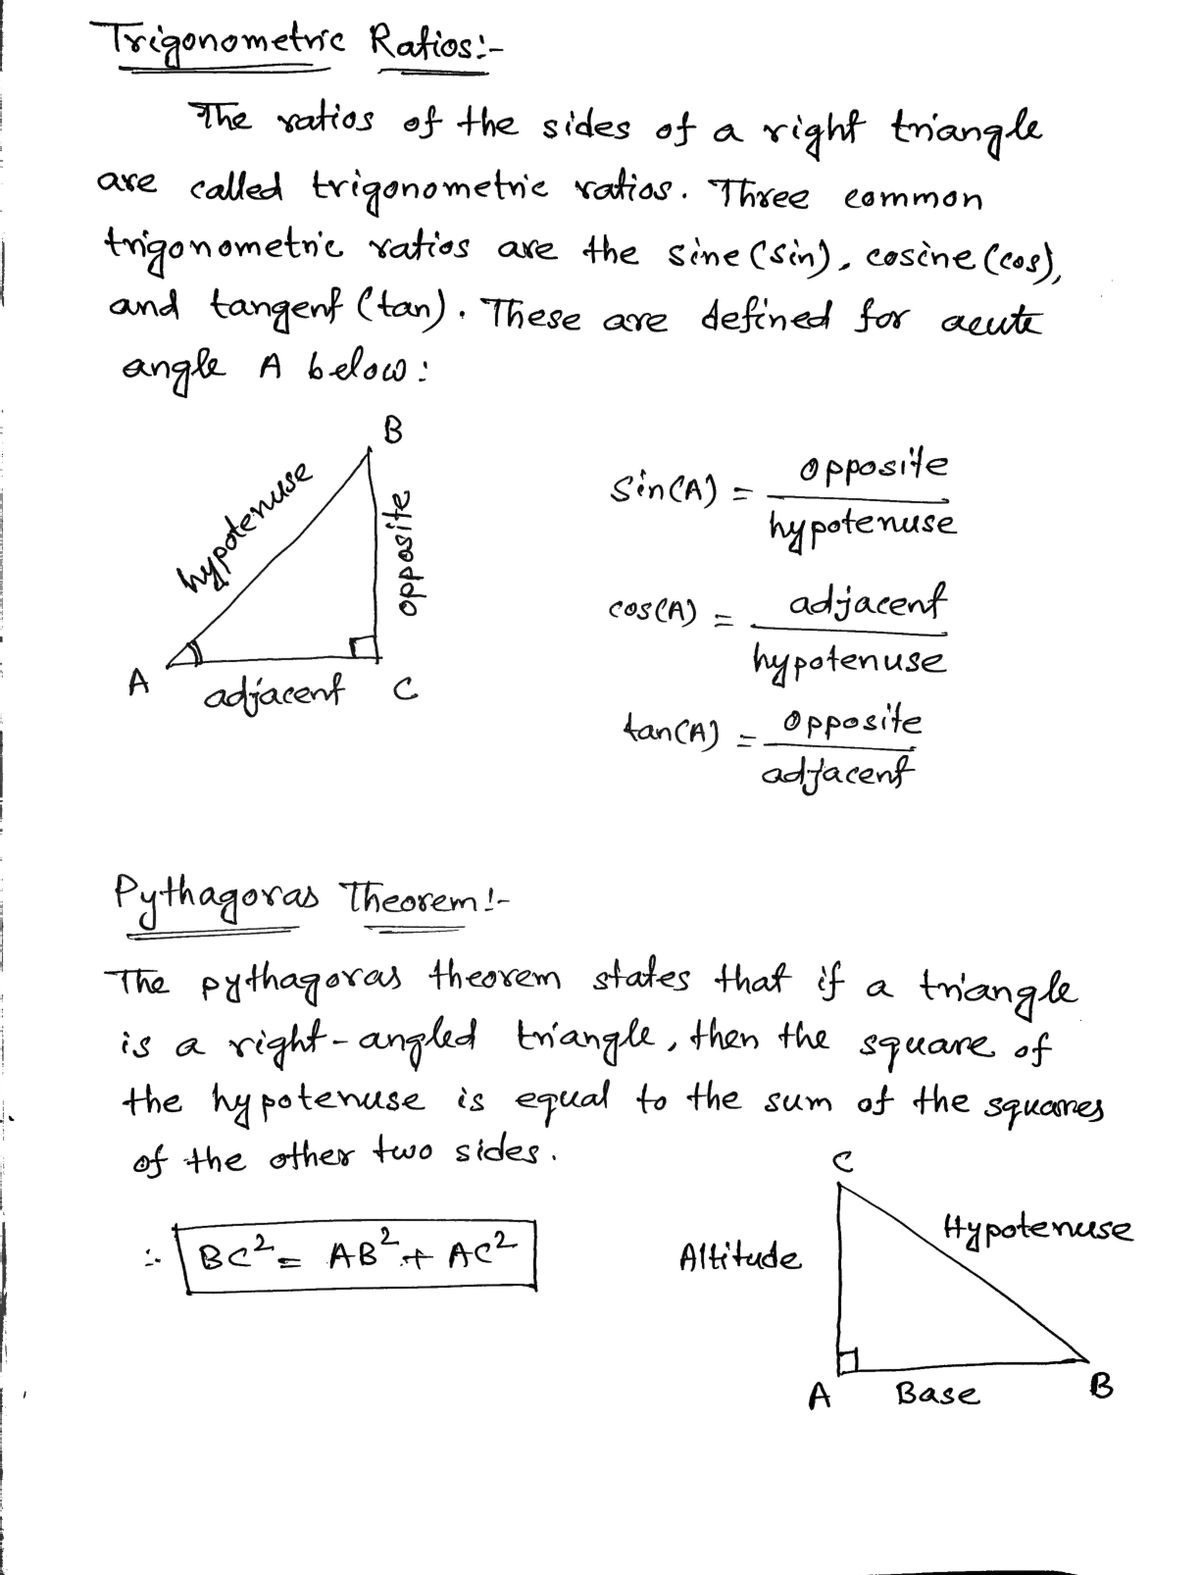 Trigonometric Ratios:-
The ratios of the sides of a right triangle
are called trigonometric ratios. Three common
trigonometric ratios are the sine (sin), cosine (cos),
and tangent (tan). These are defined for acute
angle A below:
B
hypotenuse
opposite
A
adjacent
C
sin(A) = opposite / hypotenuse
cos(A) = adjacent / hypotenuse
tan(A) = opposite / adjacent
Pythagoras Theorem:-
The pythagoras theorem states that if a triangle
is a right-angled triangle, then the square of
the hypotenuse is equal to the sum of the squares
of the other two sides.
∴ BC² = AB² + AC²
C
Altitude
Hypotenuse
A
Base
B